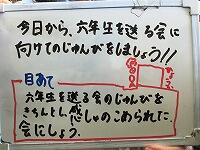 今日から、六年生を送る会に
向けてのじゅんびをしましょう!!
目あて
六年生を送る会のじゅんびを
きちんとし、感しゃのこめられた
会にしよう。